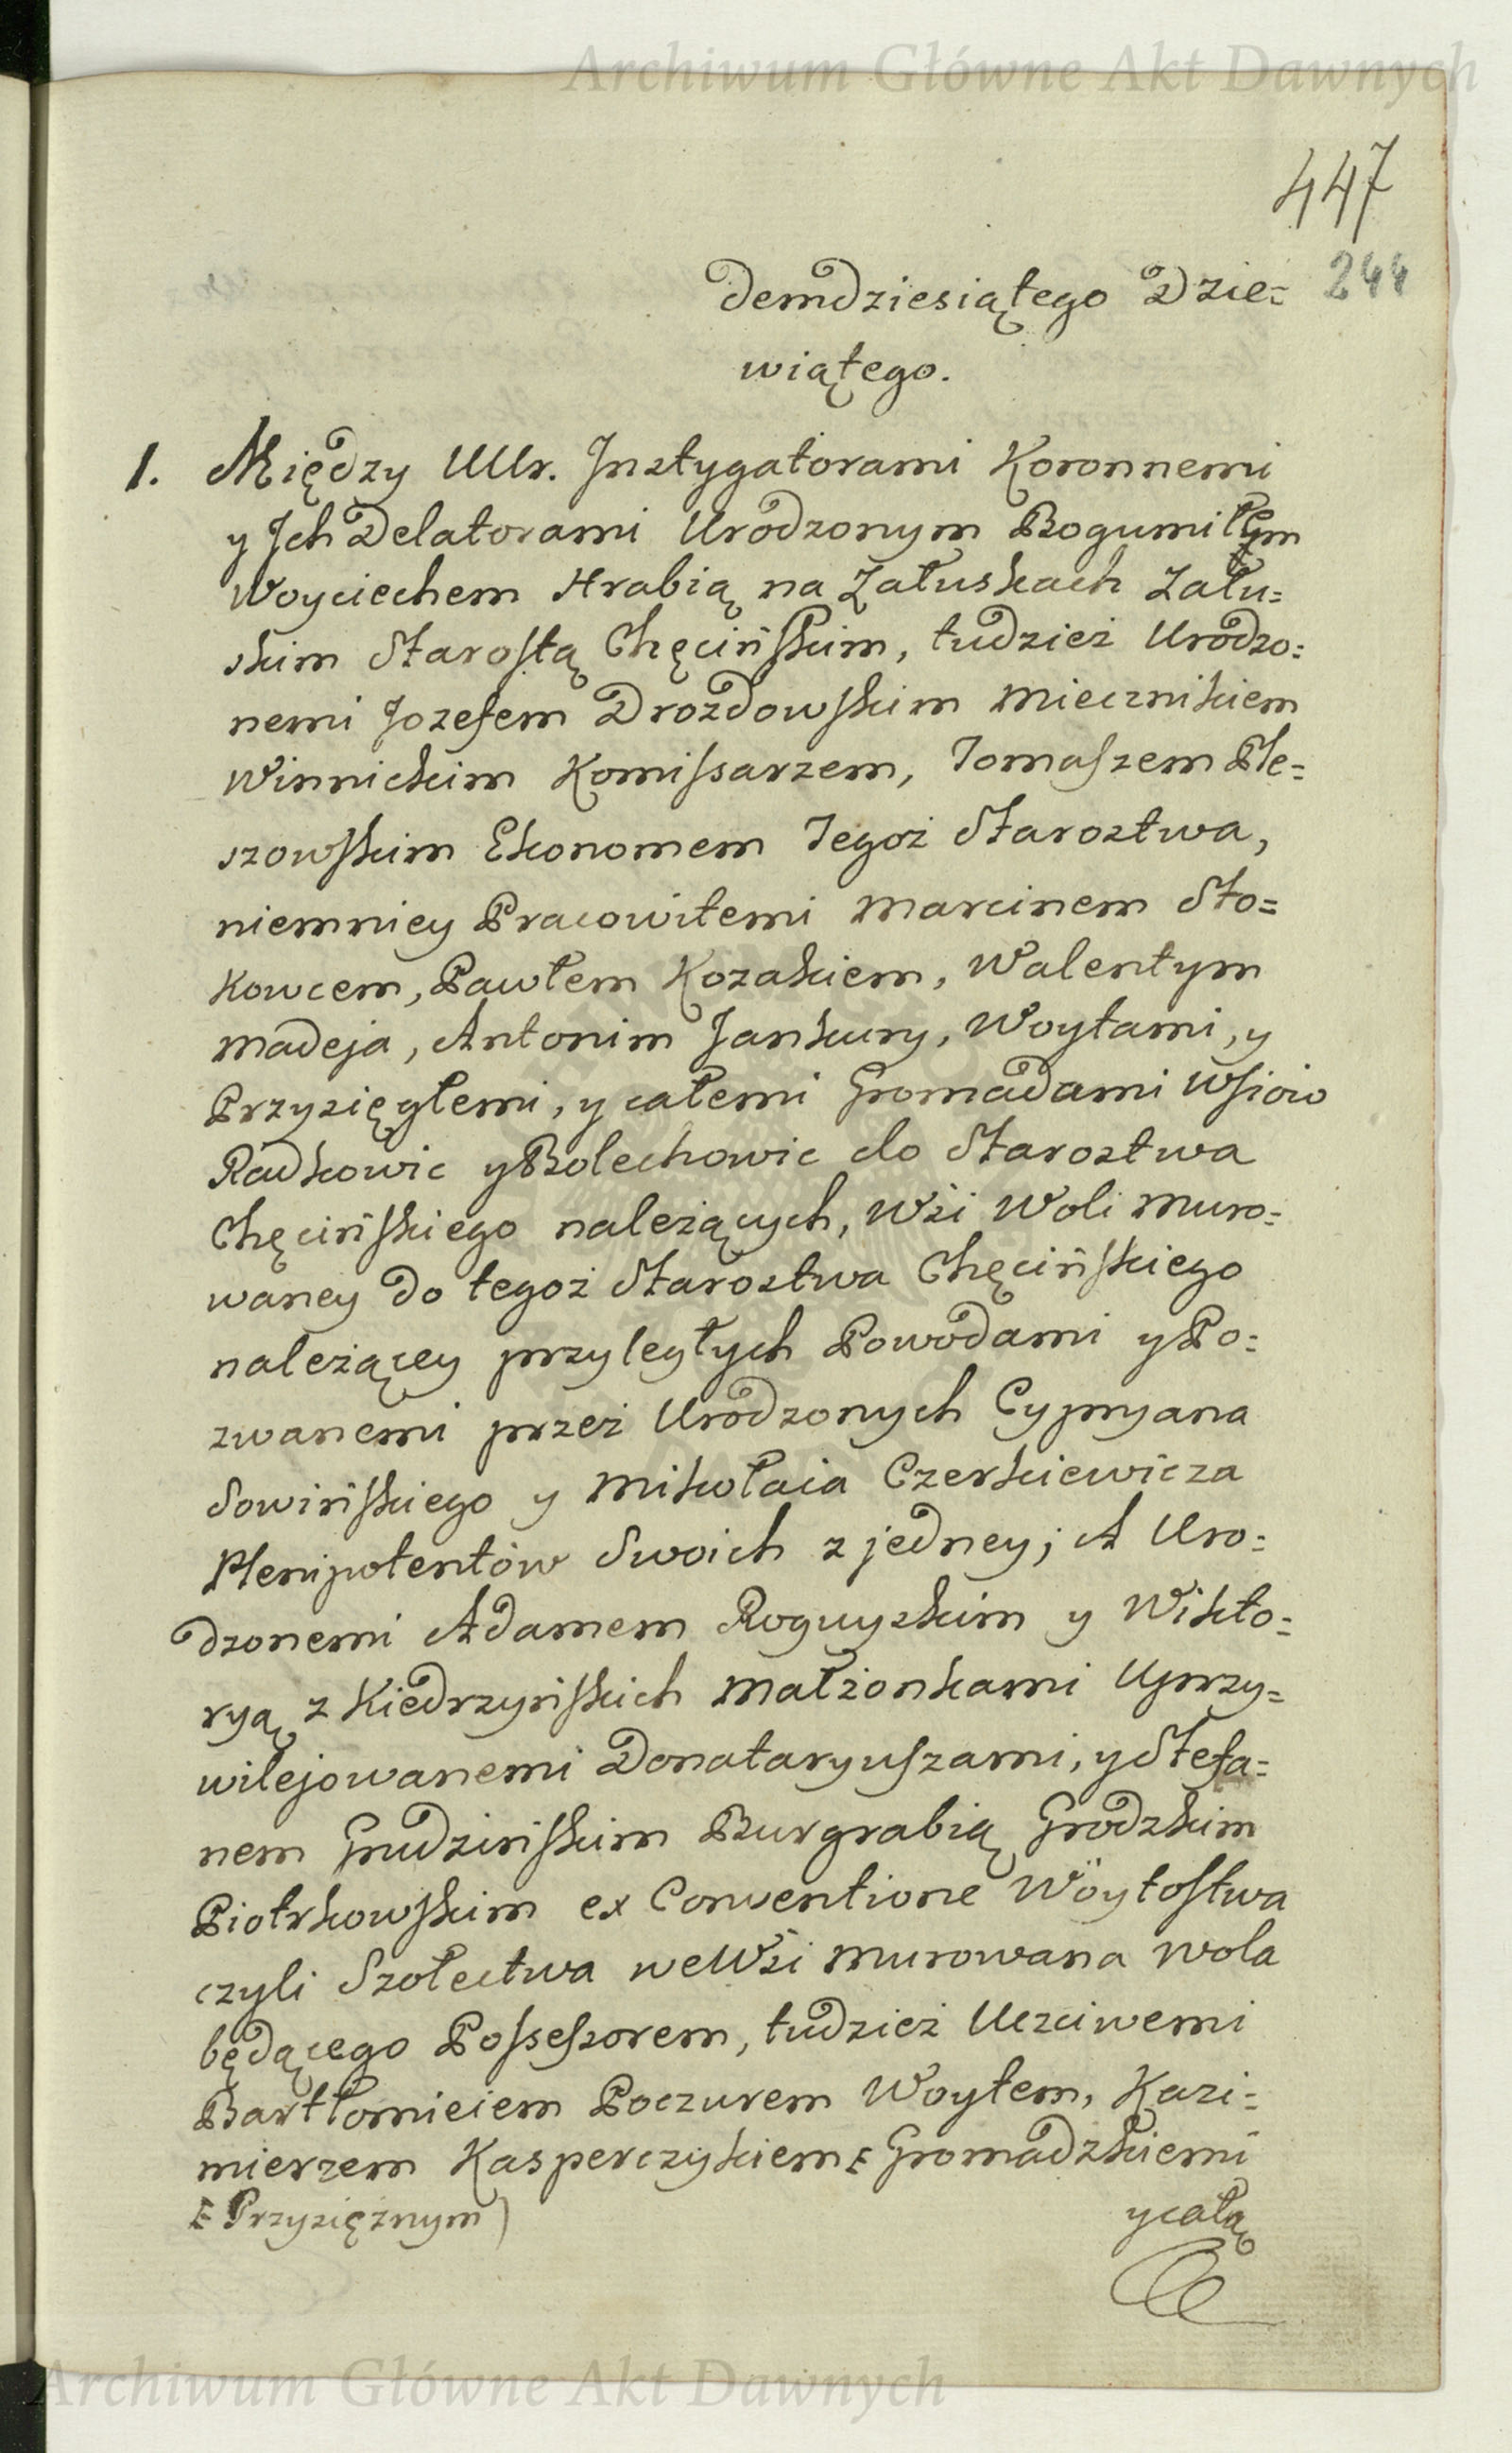 Archiwum Główne Akt Dawnych
447
244
demdziesiątego Dzie=
wiątego.
1. Między UUr. Jnstygatorami Koronnemi
y Jch Delatorami Urodzonym Bogumiłem
Woyciechem Hrabią na Załuskach Zału=
skim Starostą Chęcińskim, tudzież Urodzo=
nemi Jozefem Drozdowskim Miecznikiem
Winnickim Komissarzem, Tomaszem Ple=
szowskim Ekonomem Tegoż Starostwa,
niemniey Pracowitemi Marcinem Sto=
kowcem, Pawłem Kozakiem, Walentym
Madeja, Antonim Jankury, Woytami, y
Przysięgłemi, y całemi Gromadami Wsiow
Radkowic y Bolechowic do Starostwa
Chęcińskiego należących, Wsi Woli Muro=
waney do tegoż Starostwa Chęcińskiego
należącey przyległych Powodami y Po=
zwanemi przez Urodzonych Cypryana
Sowińskiego y Mikołaia Czerkiewicza
Plenipotentów Swoich z jedney; A Uro=
dzonemi Adamem Roguyskim y Wikto=
ryą z Kiedrzyńskich Małżonkami Uprzy=
wilejowanemi Donataryuszami, y Stefa=
nem Grudzińskim Burgrabią Grodzkim
Piotrkowskim ex Conventione Woytostwa
czyli Szołectwa we Wsi Murowana Wola
będącego Possessorem, tudzież Uczciwemi
Bartłomieiem Poczurem Woytem, Kazi=
mierzem Kasperczykiem Gromadzkiemi
Przysiężnym)
y całą
Archiwum Główne Akt Dawnych